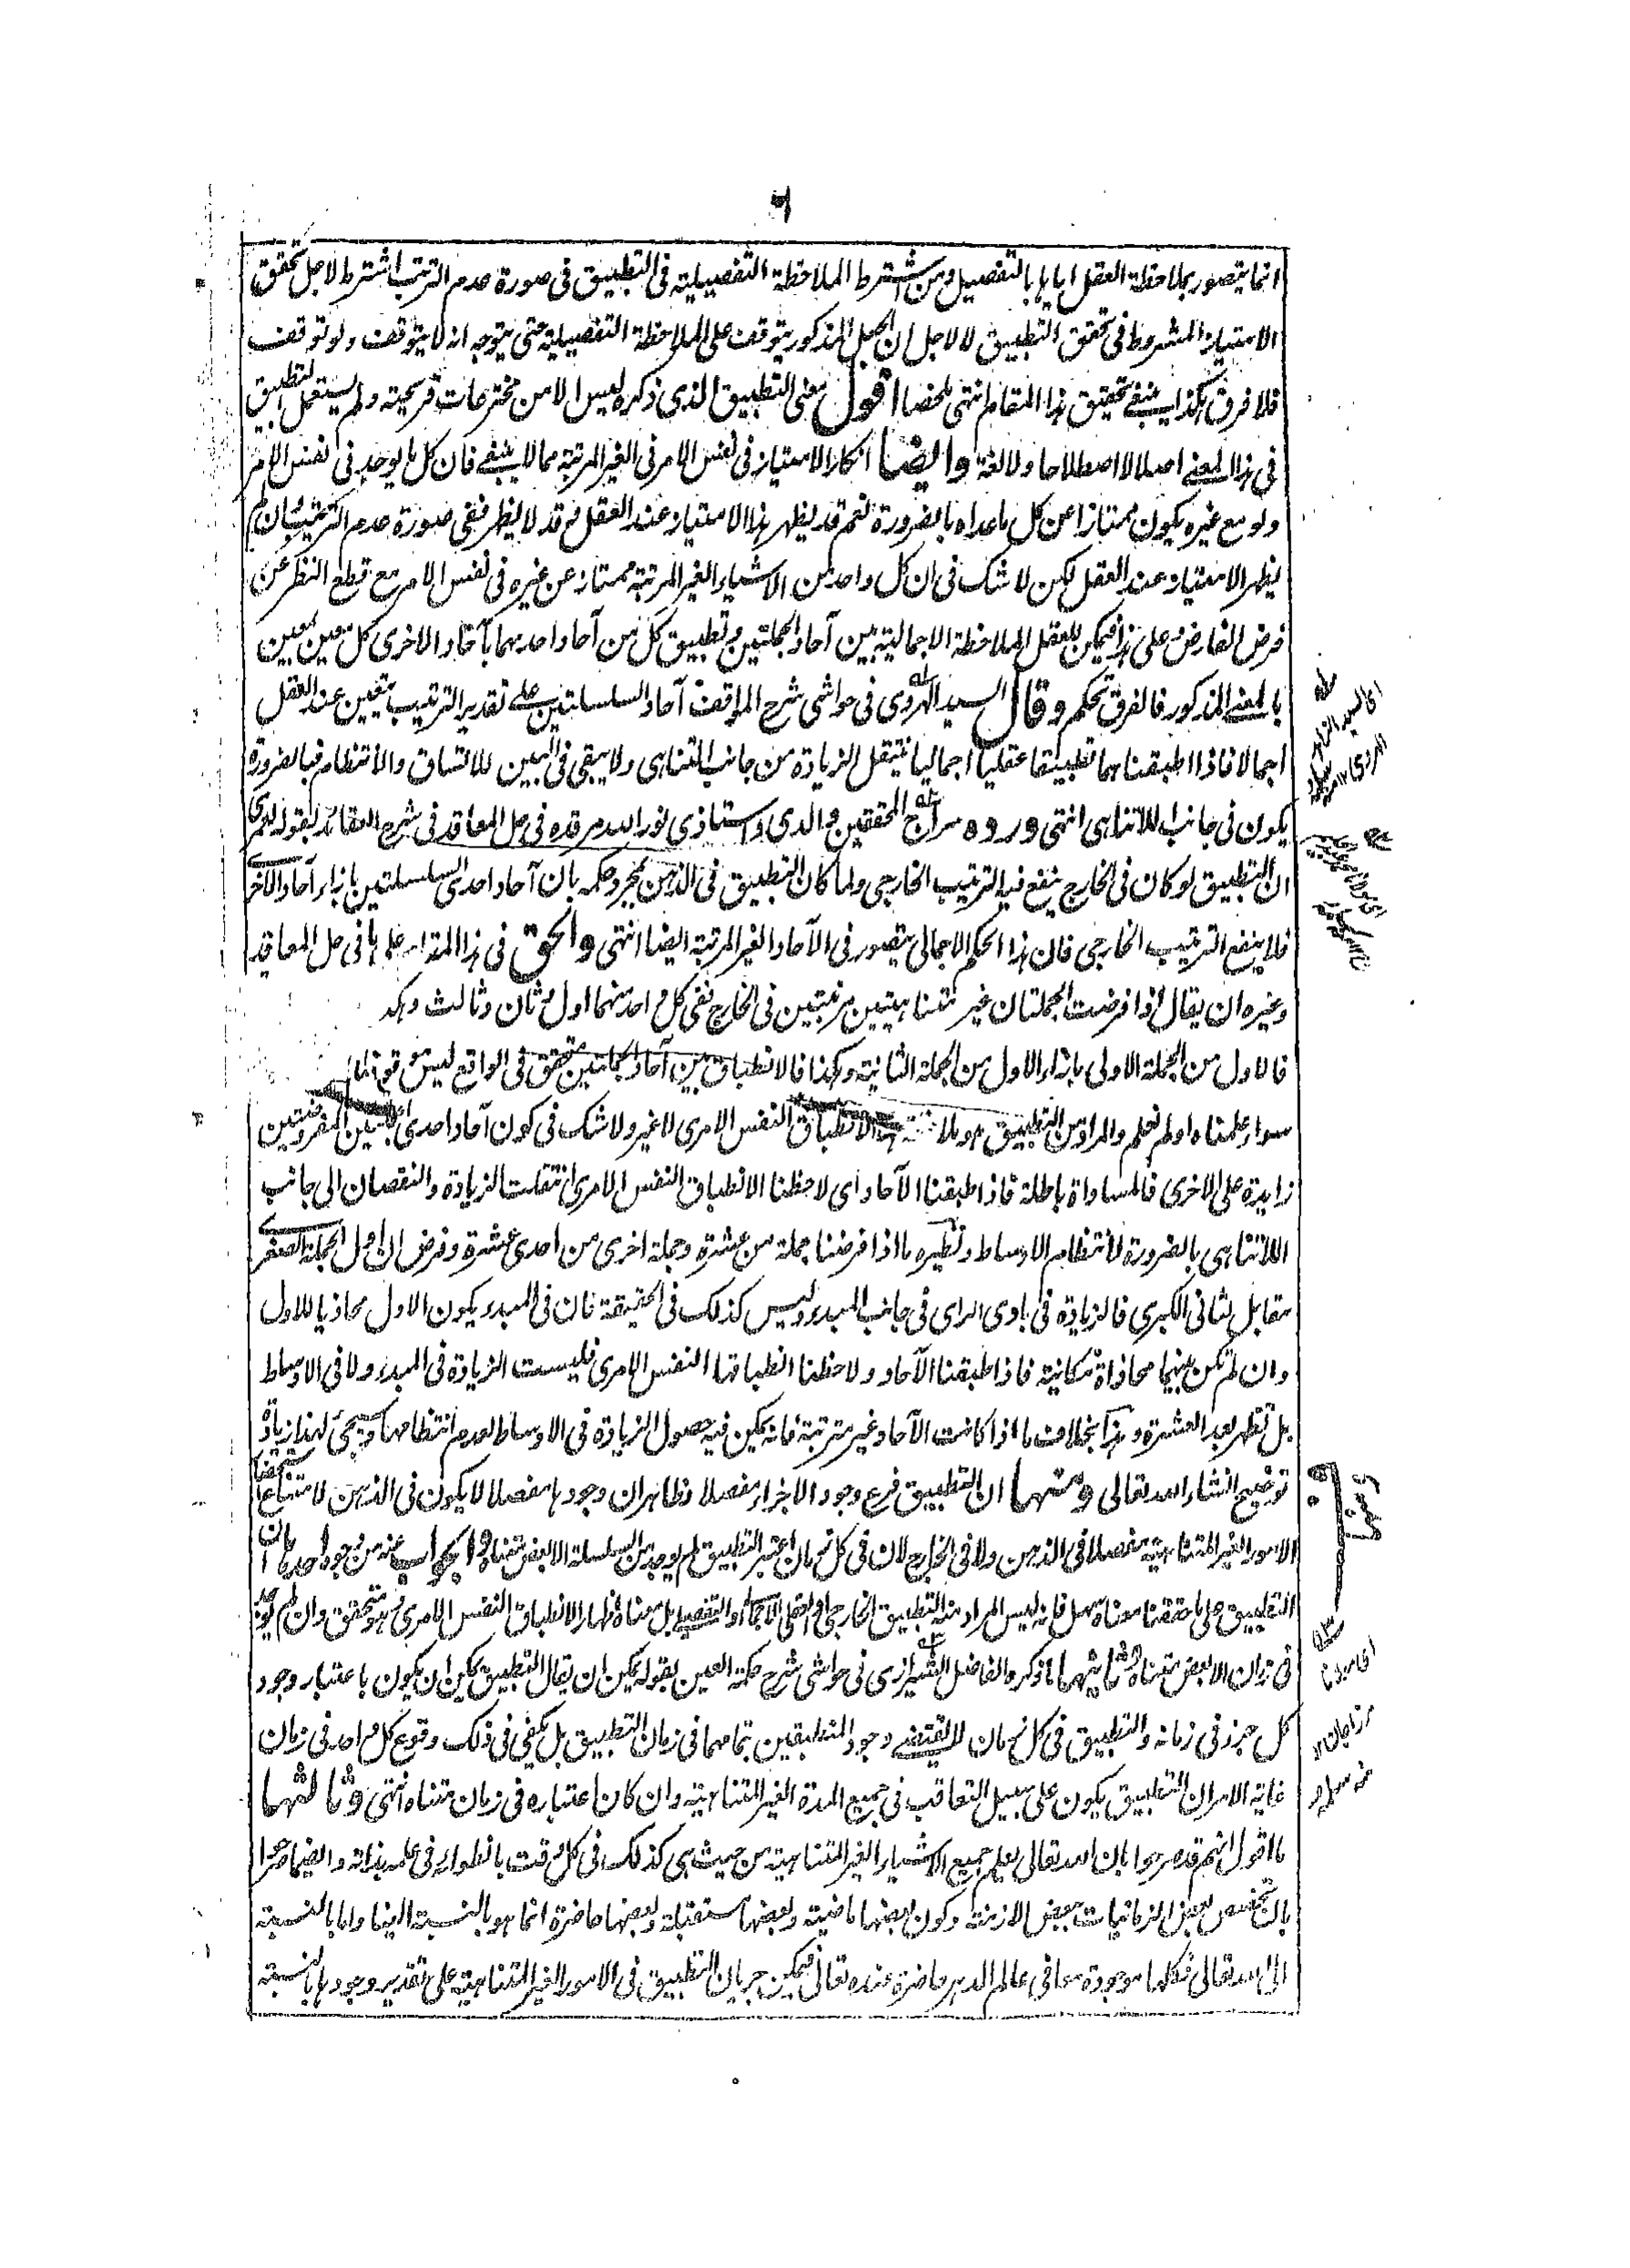 ٦
انما يتصور بملاحظة العقل اياها بالتفصيل ومن اشترط الملاحظة التفصيلية فى التطبيق فى صورة عدم الترتب اشترط لاجل تحقق
الامتياز المشروط فى تحقق التطبيق لا لاجل ان الجعل المذكور يتوقف على الملاحظة التفصيلية حتى يتوجه انه لا يتوقف ولو توقف
فلا فرق هكذا ينبغى تحقيق هذا المقام انتهى ملخصا اقول معنى التطبيق الذى ذكره ليس الا من مخترعات قريحته ولم يستعمل التطبيق
فى هذا المعنى اصلا لا اصطلاحا ولا لغة وايضا انكار الامتياز فى نفس الامر فى الغير المرتبة مما لا ينبغى فان كل ما يوجد فى نفس الامر
ولو مع غيره يكون ممتازا عن كل ما عداه بالضرورة نعم قد يظهر هذا الامتياز عند العقل وقد لا يظهر ففى صورة عدم الترتب وان لم
يظهر الامتياز عند العقل لكن لا شك فى ان كل واحد من الاشياء الغير المرتبة ممتاز عن غيره فى نفس الامر مع قطع النظر عن
فرض الفارض وعلى هذا فيمكن للعقل الملاحظة الاجمالية بين آحاد الجملتين وتطبيق كل من آحاد احدهما بآحاد الاخرى كل معين بمعين
بالمعنى المذكور فالفرق تحكم وقال السيد الهروى فى حواشى شرح المواقف آحاد السلسلتين على تقدير الترتيب يتعين عند العقل
اجمالا فاذا اطبقنا بهما تطبيقا عقليا اجماليا ينتقل الزيادة من جانب التناهى ولا يبقى فى البين للاتساق والانتظام فبالضرورة
يكون فى جانب اللاتناهى انتهى ورده سراج المحققين والدى واستاذى نور الله مرقده فى حل المعاقد فى شرح العقائد بقوله لعمرى
ان التطبيق لو كان فى الخارج ينفع فيه الترتيب الخارجى ولما كان التطبيق فى الذهن بمجرد حكمه بان آحاد احدى السلسلتين بازاء آحاد الاخرى
فلا ينفع الترتيب الخارجى فان هذا الحكم الاجمالى يتصور فى الآحاد الغير المرتبة ايضا انتهى والحق فى هذا المقام على ما فى حل المعاقد
وغيره ان يقال اذا فرضت الجملتان غير متناهيتين مرتبتين فى الخارج ففى كل واحد منهما اول وثان وثالث وهكذا
فالاول من الجملة الاولى بازاء الاول من الجملة الثانية وهكذا فالانطباق بين آحاد الجملتين متحقق فى الواقع ليس موقوفا
سواء علمناه او لم نعلم والمراد من التطبيق هو ملاحظة هذا الانطباق النفس الامرى لا غير ولا شك فى كون آحاد احدى الجملتين المفروضتين
زايدة على الاخرى فالمساواة باطلة فاذا طبقنا الآحاد اى لاحظنا الانطباق النفس الامرى انتقلت الزيادة والنقصان الى جانب
اللاتناهى بالضرورة لانتظام الاوساط ونظيره ما اذا فرضنا جملة من عشرة وجملة اخرى من احدى عشرة وفرض ان اول الجملة الصغرى
مقابل لثانى الكبرى فالزيادة فى بادى الراى فى جانب المبدء وليس كذلك فى الحقيقة فان فى المبدء يكون الاول محاذيا للاول
وان لم تكن بينهما محاذاة مكانية فاذا طبقنا الآحاد ولاحظنا انطباقها النفس الامرى فليست الزيادة فى المبدء ولا فى الاوساط
بل تظهر بعد العشرة وهذا بخلاف ما اذا كانت الآحاد غير مترتبة فانه يمكن فيه حصول الزيادة فى الاوساط لعدم انتظامها وسيجئ لهذا زيادة
توضيح انشاء الله تعالى ومنها ان التطبيق فرع وجود الاجزاء مفصلا وظاهر ان وجودها مفصلا لا يكون فى الذهن لامتناع استحضار
الامور الغير المتناهية مفصلا فى الذهن ولا فى الخارج لان فى كل زمان اعتبر التطبيق لم يوجد من السلسلة الا بعض متناه والجواب عنه من وجوه احدها ان
التطبيق على ما حققنا معناه سهل فانه ليس المراد منه التطبيق الخارجى او العقلى الاجمالى او التفصيلى بل معناه اظهار الانطباق النفس الامرى وهو متحقق وان لم يوجد
فى زمان الا بعض متناه وثانيهما ما ذكره الفاضل الشيرازى فى حواشى شرح حكمة العين بقوله يمكن ان يقال التطبيق يمكن ان يكون باعتبار وجود
كل جزء فى زمانه والتطبيق فى كل زمان لا يقتضى وجود المنطبقين بتمامهما فى زمان التطبيق بل يكفى فى ذلك وقوع كل واحد فى زمان
غاية الامر ان التطبيق يكون على سبيل التعاقب فى جميع المدة الغير المتناهية وان كان اعتباره فى زمان متناه انتهى وثالثها
ما اقول انهم قد صرحوا بان الله تعالى يعلم جميع الاشياء الغير المتناهية من حيث هى كذلك فى كل وقت بانطوائه فى علمه بذاته وايضا صرحوا
بان تخصص بعض الزمانيات ببعض الازمنة وكون بعضها ماضية وبعضها مستقبلة وبعضها حاضرة انما هو بالنسبة الينا واما بالنسبة
الى الله تعالى فكلها موجودة معا فى عالم الدهر حاضرة عنده تعالى فيمكن جريان التطبيق فى الامور الغير المتناهية على تقدير وجودها بالنسبة
اى السيد الزاهد
الهروى ١٢ منه سلمه